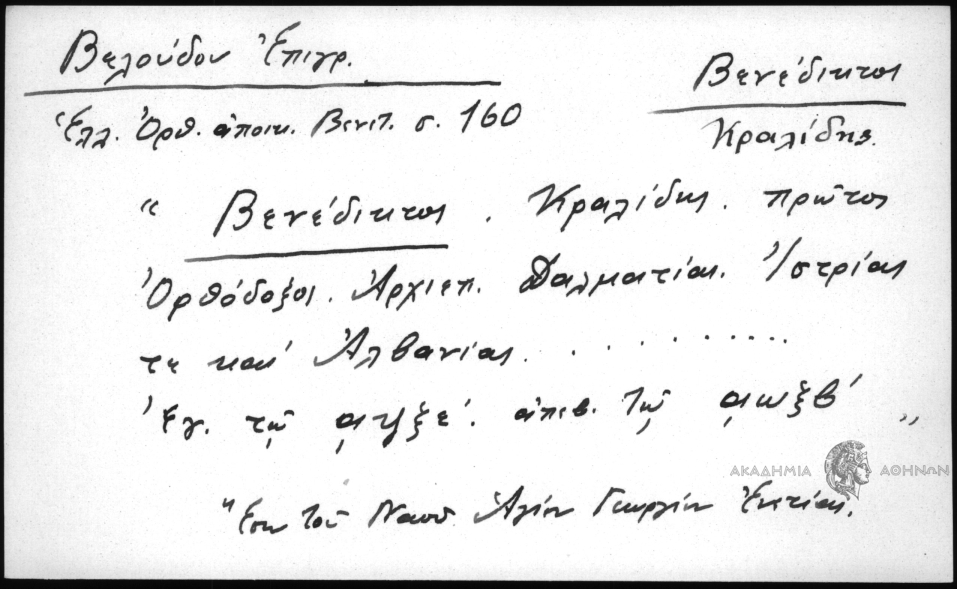 Βελούδου Ἐπιγρ.
Βενέδικτος
Κραλίδης.
Ἑλλ. Ὀρθ. ἀποικ. Βενετ. σ. 160
" Βενέδικτος . Κραλίδης . πρῶτος
Ὀρθόδοξος . Ἀρχιεπ. Δαλματίας . Ἰστρίας
τε καὶ Ἀλβανίας . . . . . . . . . . .
Ἐγ. τῷ ͵αψξέ. ἀπεβ. τῷ ͵αωξβ́ "
ΑΚΑΔΗΜΙΑ ΑΘΗΝΩΝ
τοῦ Ναοῦ Ἁγίου Γεωργίου Ἐνετίας.